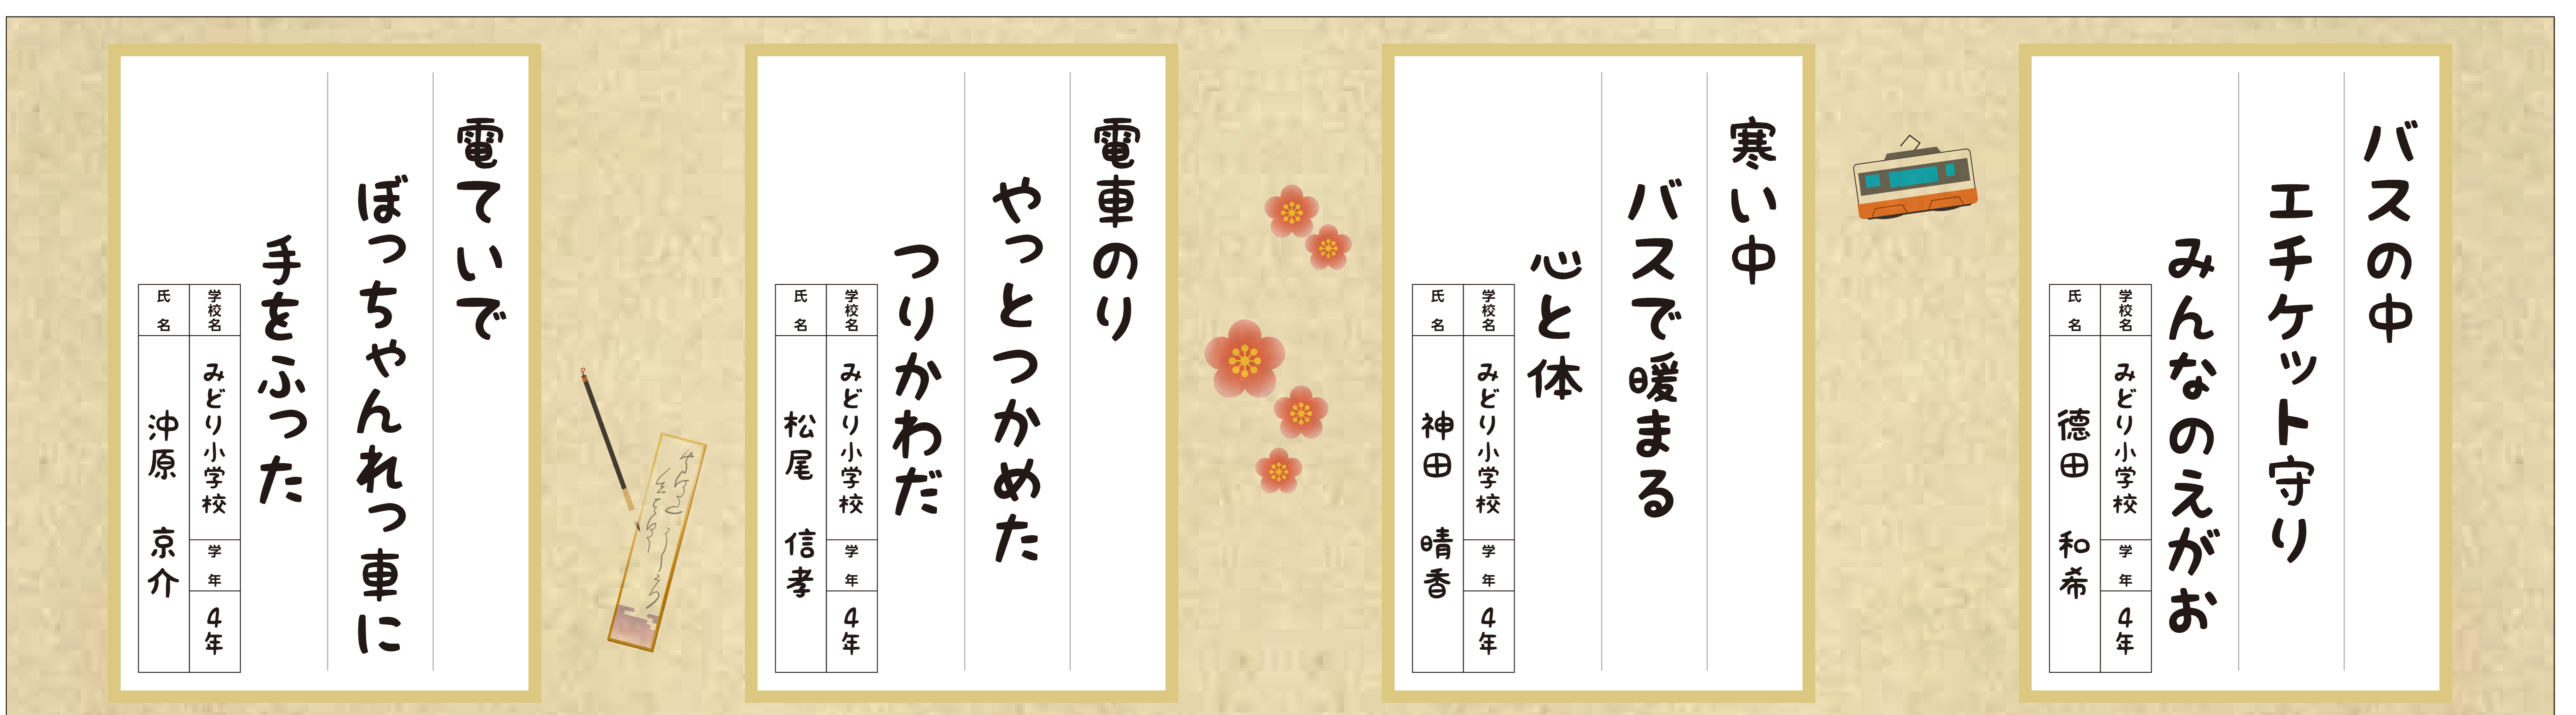 バスの中
エチケット守り
みんなのえがお
学校名
みどり小学校
学年
4年
氏名
德田 和希
寒い中
バスで暖まる
心と体
学校名
みどり小学校
学年
4年
氏名
神田 晴香
電車のり
やっとつかめた
つりかわだ
学校名
みどり小学校
学年
4年
氏名
松尾 信孝
電ていで
ぼっちゃんれっ車に
手をふった
学校名
みどり小学校
学年
4年
氏名
沖原 京介